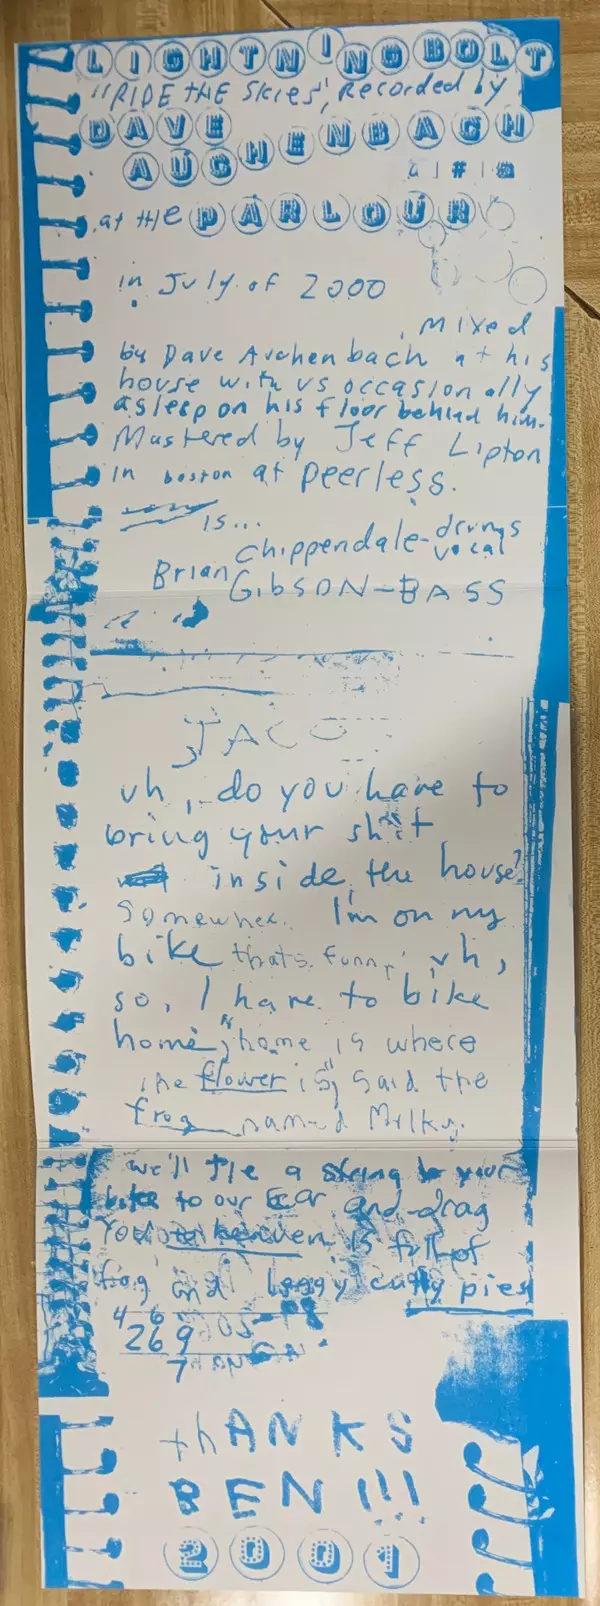 LIGHTN'NG BOLT
"RIDE THE SKIES", Recorded by
DAVE
AUCHENBACH
at the PARLOUR
in July of 2000
Mixed
by Dave Auchenbach at his
house with us occasionally
asleep on his floor behind him.
Mastered by Jeff Lipton
in boston at Peerless.
is...
Chippendale-drums
vocal
Brian
GibSON-BASS
uh, do you have to
bring your shit
inside the house?
I'm on my
bike that's funny uh,
so, I have to bike
home, "home is where
the flower is", said the
frog named Milky.
we'll tie a string to your
bike to our Ear and drag
You heaven is full of
frog and leggy cutty pies
4 6
269
7
thANKS
BEN!!!
2001